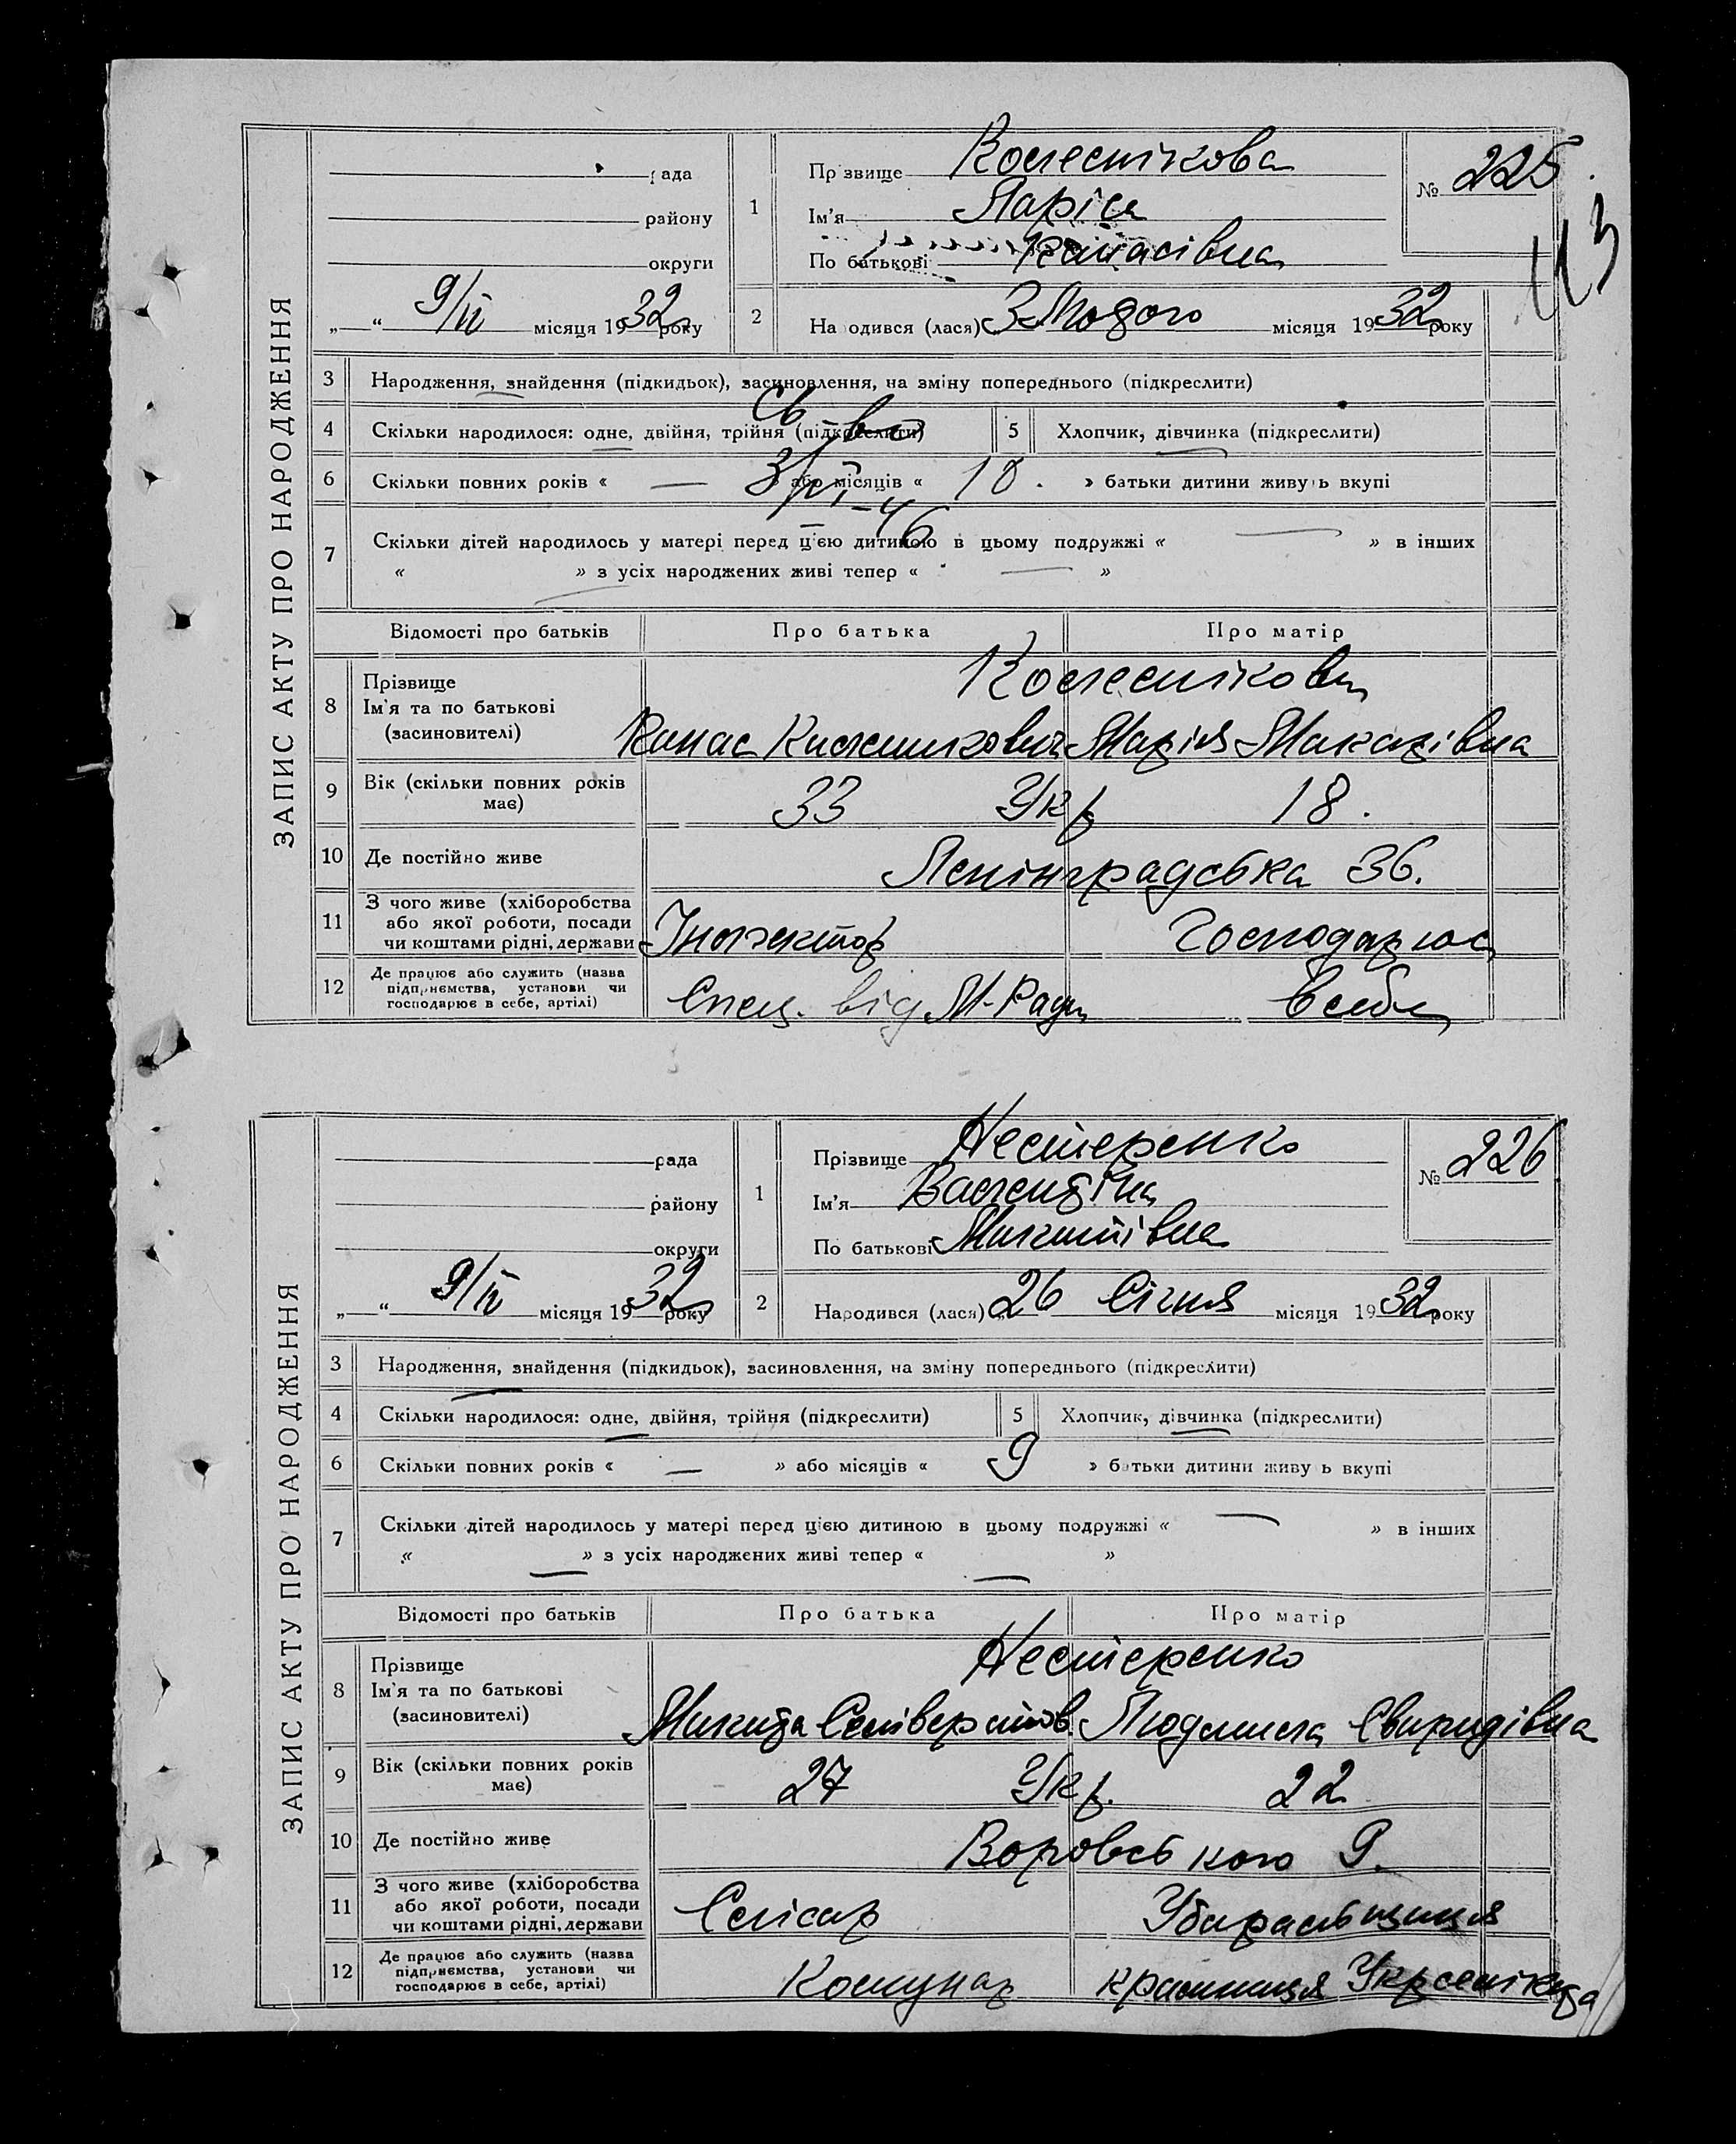 ЗАПИС АКТУ ПРО НАРОДЖЕННЯ
рада
району
округи
„ “ 9/II місяця 1932 року
1
Прізвище Колеснікова
Ім'я Ларіса
По батькові Панасівна
№ 225
113
2
Народився (лася) 3 Лютого місяця 1932 року
3 Народження, знайдення (підкидьок), засиновлення, на зміну попереднього (підкреслити)
4 Скільки народилося: одне, двійня, трійня (підкреслити)
5 Хлопчик, дівчинка (підкреслити)
Св-во
3/VI-46
6 Скільки повних років « — » або місяців « 10. » батьки дитини живуть вкупі
7 Скільки дітей народилось у матері перед цією дитиною в цьому подружжі « — » в інших
« — » з усіх народжених живі тепер « — »
Відомості про батьків Про батька Про матір
8 Прізвище
Ім'я та по батькові
(засиновителі)
Колеснікови
Панас Марія Макарівна
9 Вік (скільки повних років має) 33 Укр. 18.
10 Де постійно живе Ленінградська 36.
11 З чого живе (хліборобства або якої роботи, посади чи коштами рідні, держави Господарює
12 Де працює або служить (назва підприємства, установи чи господарює в себе, артілі) Спец. від М-Ради В себе
ЗАПИС АКТУ ПРО НАРОДЖЕННЯ
рада
району
округи
„ “ 9/II місяця 1932 року
1
Прізвище Нестеренко
Ім'я Валентіна
По батькові Микитівна
№ 226
2
Народився (лася) „26 Січня місяця 1932 року
3 Народження, знайдення (підкидьок), засиновлення, на зміну попереднього (підкреслити)
4 Скільки народилося: одне, двійня, трійня (підкреслити)
5 Хлопчик, дівчинка (підкреслити)
6 Скільки повних років « — » або місяців « 9 » батьки дитини живуть вкупі
7 Скільки дітей народилось у матері перед цією дитиною в цьому подружжі « — » в інших
« — » з усіх народжених живі тепер « — »
Відомості про батьків Про батька Про матір
8 Прізвище
Ім'я та по батькові
(засиновителі)
Нестеренко
Микита Селіверстов. Людмила Свиридівна
9 Вік (скільки повних років має) 27 Укр. 22
10 Де постійно живе Воровського 9.
11 З чого живе (хліборобства або якої роботи, посади чи коштами рідні, держави Слісар Убиральщиця
12 Де працює або служить (назва підприємства, установи чи господарює в себе, артілі) Комунар